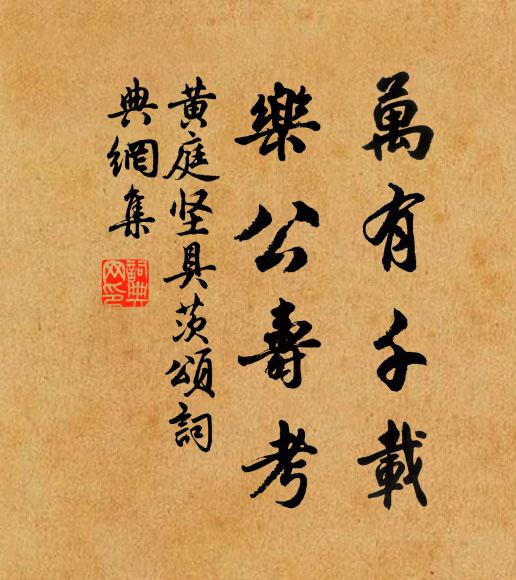 萬有千載
樂公壽考
黃庭坚具茨頌詞
典網集
詞典网印